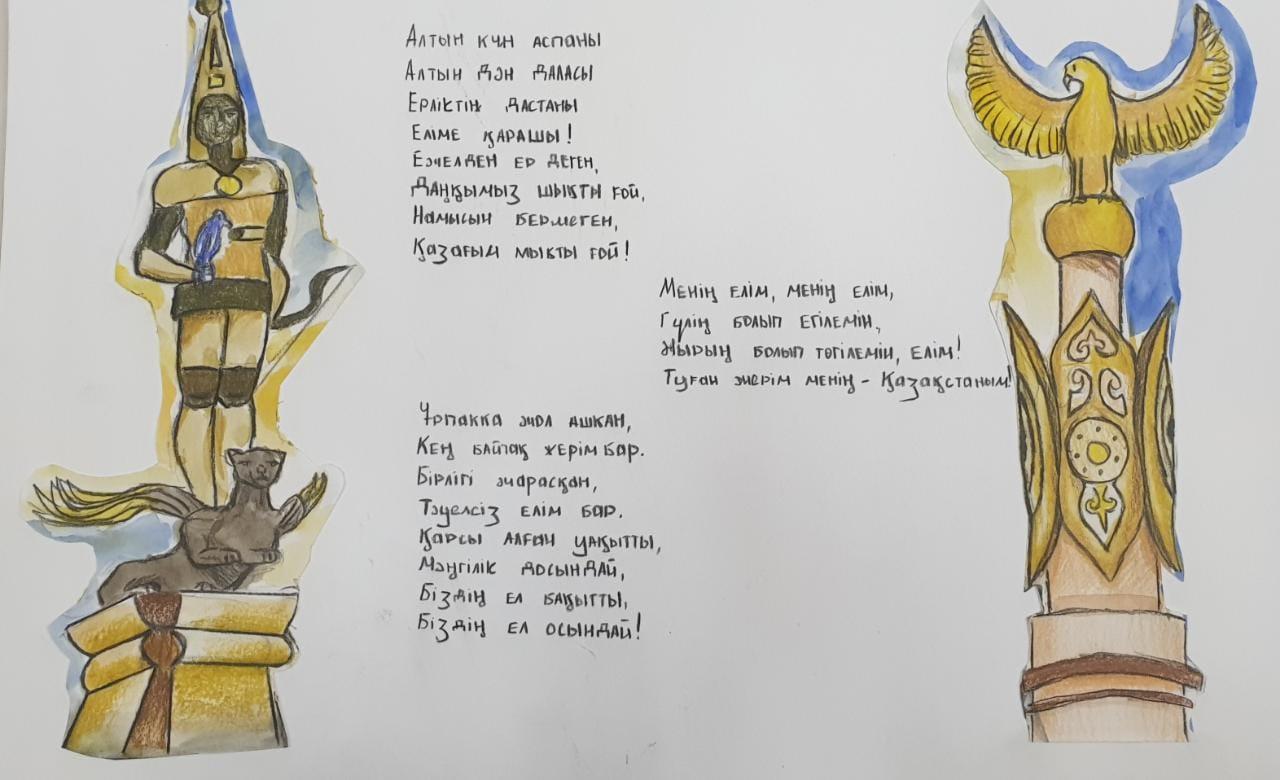 Алтын күн аспаны
Алтын дән даласы
Ерліктің дастаны
Еліме қарашы!
Ежелден ер деген,
Даңқымыз шықты ғой,
Намысын бермеген,
Қазағым мықты ғой!
Менің елім, менің елім,
Гүлің болып егілемін,
Жырың болып төгілемін, елім!
Туған жерім менің - Қазақстаным!
Ұрпакка жол ашкан,
Кең байтақ жерім бар.
Бірлігі жарасқан,
Тәуелсіз елім бар.
Қарсы алған уақытты,
Мәңгілік досындай,
Біздің ел бақытты,
Біздің ел осындай!